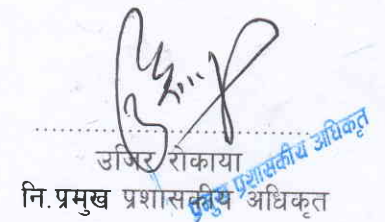 उजिर रोकाया
नि.प्रमुख प्रशासकीय अधिकृत
प्रमुख प्रशासकीय अधिकृत